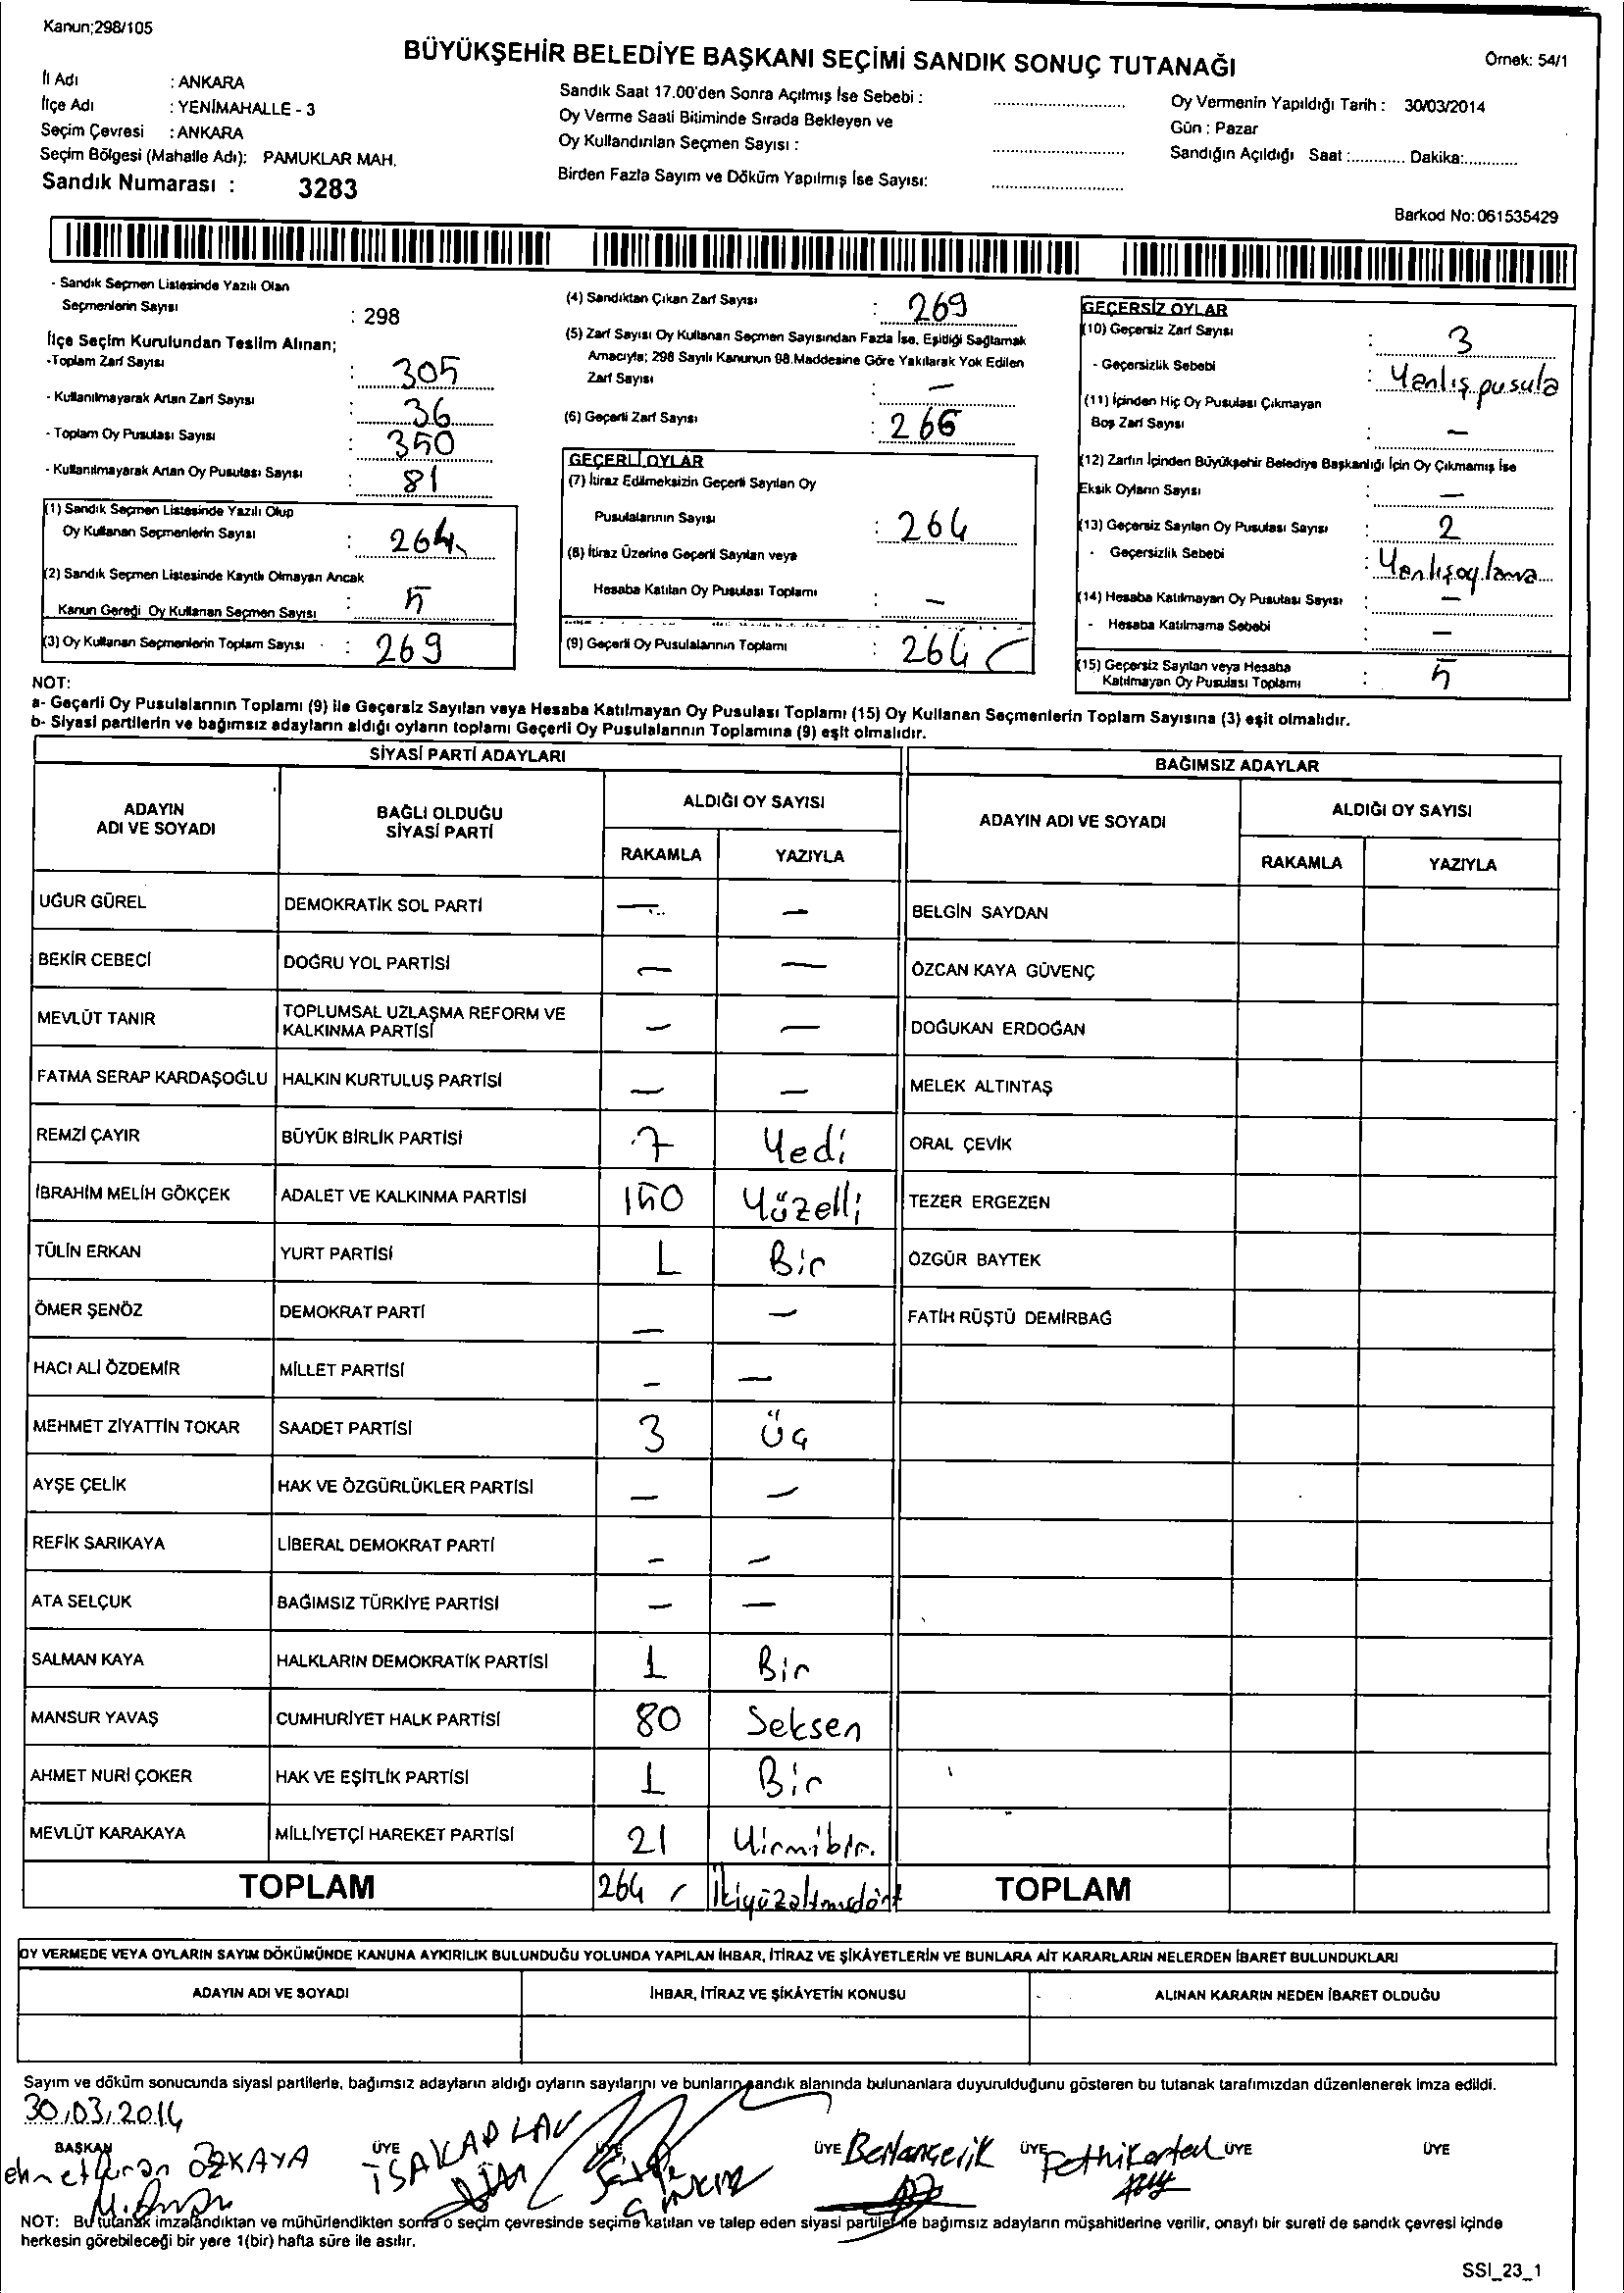 Kanun;298/105
BÜYÜKŞEHİR BELEDİYE BAŞKANI SEÇİMİ SANDIK SONUÇ TUTANAĞI
Örnek: 54/1
İl Adı : ANKARA
İlçe Adı : YENİMAHALLE - 3
Seçim Çevresi : ANKARA
Seçim Bölgesi (Mahalle Adı): PAMUKLAR MAH.
Sandık Numarası : 3283
Sandık Saat 17.00'den Sonra Açılmış İse Sebebi :
Oy Verme Saati Bitiminde Sırada Bekleyen ve
Oy Kullandırılan Seçmen Sayısı :
Birden Fazla Sayım ve Döküm Yapılmış İse Sayısı:
Oy Vermenin Yapıldığı Tarih : 30/03/2014
Gün : Pazar
Sandığın Açıldığı Saat :............ Dakika:............
Barkod No:061535429
- Sandık Seçmen Listesinde Yazılı Olan
Seçmenlerin Sayısı : 298
İlçe Seçim Kurulundan Teslim Alınan;
-Toplam Zarf Sayısı : 305
- Kullanılmayarak Artan Zarf Sayısı : 36
- Toplam Oy Pusulası Sayısı : 350
- Kullanılmayarak Artan Oy Pusulası Sayısı : 81
(1) Sandık Seçmen Listesinde Yazılı Olup
Oy Kullanan Seçmenlerin Sayısı : 264
(2) Sandık Seçmen Listesinde Kayıtlı Olmayan Ancak
Kanun Gereği Oy Kullanan Seçmen Sayısı : 5
(3) Oy Kullanan Seçmenlerin Toplam Sayısı : 269
(4) Sandıktan Çıkan Zarf Sayısı : 269
(5) Zarf Sayısı Oy Kullanan Seçmen Sayısından Fazla İse, Eşitliği Sağlamak
Amacıyla; 298 Sayılı Kanunun 98.Maddesine Göre Yakılarak Yok Edilen
Zarf Sayısı : -
(6) Geçerli Zarf Sayısı : 266
GEÇERLİ OYLAR
(7) İtiraz Edilmeksizin Geçerli Sayılan Oy
Pusulalarının Sayısı : 264
(8) İtiraz Üzerine Geçerli Sayılan veya
Hesaba Katılan Oy Pusulası Toplamı : -
(9) Geçerli Oy Pusulalarının Toplamı : 264
GEÇERSİZ OYLAR
(10) Geçersiz Zarf Sayısı : 3
- Geçersizlik Sebebi : Yanlış pusula
(11) İçinden Hiç Oy Pusulası Çıkmayan
Boş Zarf Sayısı : -
(12) Zarfın İçinden Büyükşehir Belediye Başkanlığı İçin Oy Çıkmamış İse
Eksik Oyların Sayısı : -
(13) Geçersiz Sayılan Oy Pusulası Sayısı : 2
- Geçersizlik Sebebi : Yanlış oylama
(14) Hesaba Katılmayan Oy Pusulası Sayısı : -
- Hesaba Katılmama Sebebi : -
(15) Geçersiz Sayılan veya Hesaba
Katılmayan Oy Pusulası Toplamı : 5
NOT:
a- Geçerli Oy Pusulalarının Toplamı (9) ile Geçersiz Sayılan veya Hesaba Katılmayan Oy Pusulası Toplamı (15) Oy Kullanan Seçmenlerin Toplam Sayısına (3) eşit olmalıdır.
b- Siyasi partilerin ve bağımsız adayların aldığı oyların toplamı Geçerli Oy Pusulalarının Toplamına (9) eşit olmalıdır.
SİYASİ PARTİ ADAYLARI BAĞIMSIZ ADAYLAR
ADAYIN ADI VE SOYADI BAĞLI OLDUĞU SİYASİ PARTİ ALDIĞI OY SAYISI ADAYIN ADI VE SOYADI ALDIĞI OY SAYISI
RAKAMLA YAZIYLA RAKAMLA YAZIYLA
UĞUR GÜREL DEMOKRATİK SOL PARTİ - - BELGİN SAYDAN
BEKİR CEBECİ DOĞRU YOL PARTİSİ - - ÖZCAN KAYA GÜVENÇ
MEVLÜT TANIR TOPLUMSAL UZLAŞMA REFORM VE KALKINMA PARTİSİ - - DOĞUKAN ERDOĞAN
FATMA SERAP KARDAŞOĞLU HALKIN KURTULUŞ PARTİSİ - - MELEK ALTINTAŞ
REMZİ ÇAYIR BÜYÜK BİRLİK PARTİSİ 7 Yedi ORAL ÇEVİK
İBRAHİM MELİH GÖKÇEK ADALET VE KALKINMA PARTİSİ 150 Yüzelli TEZER ERGEZEN
TÜLİN ERKAN YURT PARTİSİ 1 Bir ÖZGÜR BAYTEK
ÖMER ŞENÖZ DEMOKRAT PARTİ - - FATİH RÜŞTÜ DEMİRBAĞ
HACI ALİ ÖZDEMİR MİLLET PARTİSİ - -
MEHMET ZİYATTİN TOKAR SAADET PARTİSİ 3 Üç
AYŞE ÇELİK HAK VE ÖZGÜRLÜKLER PARTİSİ - -
REFİK SARIKAYA LİBERAL DEMOKRAT PARTİ - -
ATA SELÇUK BAĞIMSIZ TÜRKİYE PARTİSİ - -
SALMAN KAYA HALKLARIN DEMOKRATİK PARTİSİ 1 Bir
MANSUR YAVAŞ CUMHURİYET HALK PARTİSİ 80 Seksen
AHMET NURİ ÇOKER HAK VE EŞİTLİK PARTİSİ 1 Bir
MEVLÜT KARAKAYA MİLLİYETÇİ HAREKET PARTİSİ 21 Yirmibir.
TOPLAM 264 İkiyüzaltmışdört TOPLAM
OY VERMEDE VEYA OYLARIN SAYIM DÖKÜMÜNDE KANUNA AYKIRILIK BULUNDUĞU YOLUNDA YAPILAN İHBAR, İTİRAZ VE ŞİKÂYETLERİN VE BUNLARA AİT KARARLARIN NELERDEN İBARET BULUNDUKLARI
ADAYIN ADI VE SOYADI İHBAR, İTİRAZ VE ŞİKÂYETİN KONUSU ALINAN KARARIN NEDEN İBARET OLDUĞU
Sayım ve döküm sonucunda siyasi partilerle, bağımsız adayların aldığı oyların sayılarını ve bunların sandık alanında bulunanlara duyurulduğunu gösteren bu tutanak tarafımızdan düzenlenerek imza edildi.
30.03.2014
BAŞKAN ÜYE ÜYE ÜYE ÜYE ÜYE ÜYE
ÖZKAYA İSA KAPLAN
NOT: Bu tutanak imzalandıktan ve mühürlendikten sonra o seçim çevresinde seçime katılan ve talep eden siyasi partiler ile bağımsız adayların müşahitlerine verilir, onaylı bir sureti de sandık çevresi içinde
herkesin görebileceği bir yere 1(bir) hafta süre ile asılır.
SSI_23_1